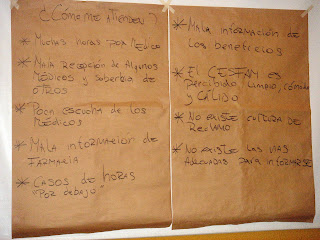 ¿Cómo me atienden?
* Muchas horas por Médico
* Mala recepción de Algunos
Médicos y soberbia de
otros
* Poca escucha de los
Médicos
* Mala información de
Farmacia
* Casos de horas
"Por debajo"
* Mala información de
los beneficios
* El CESFAM es
percibido, Limpio, cómodo
y cálido
* No existe cultura de
Reclamo
* No existe las vías
Adecuadas para informarse